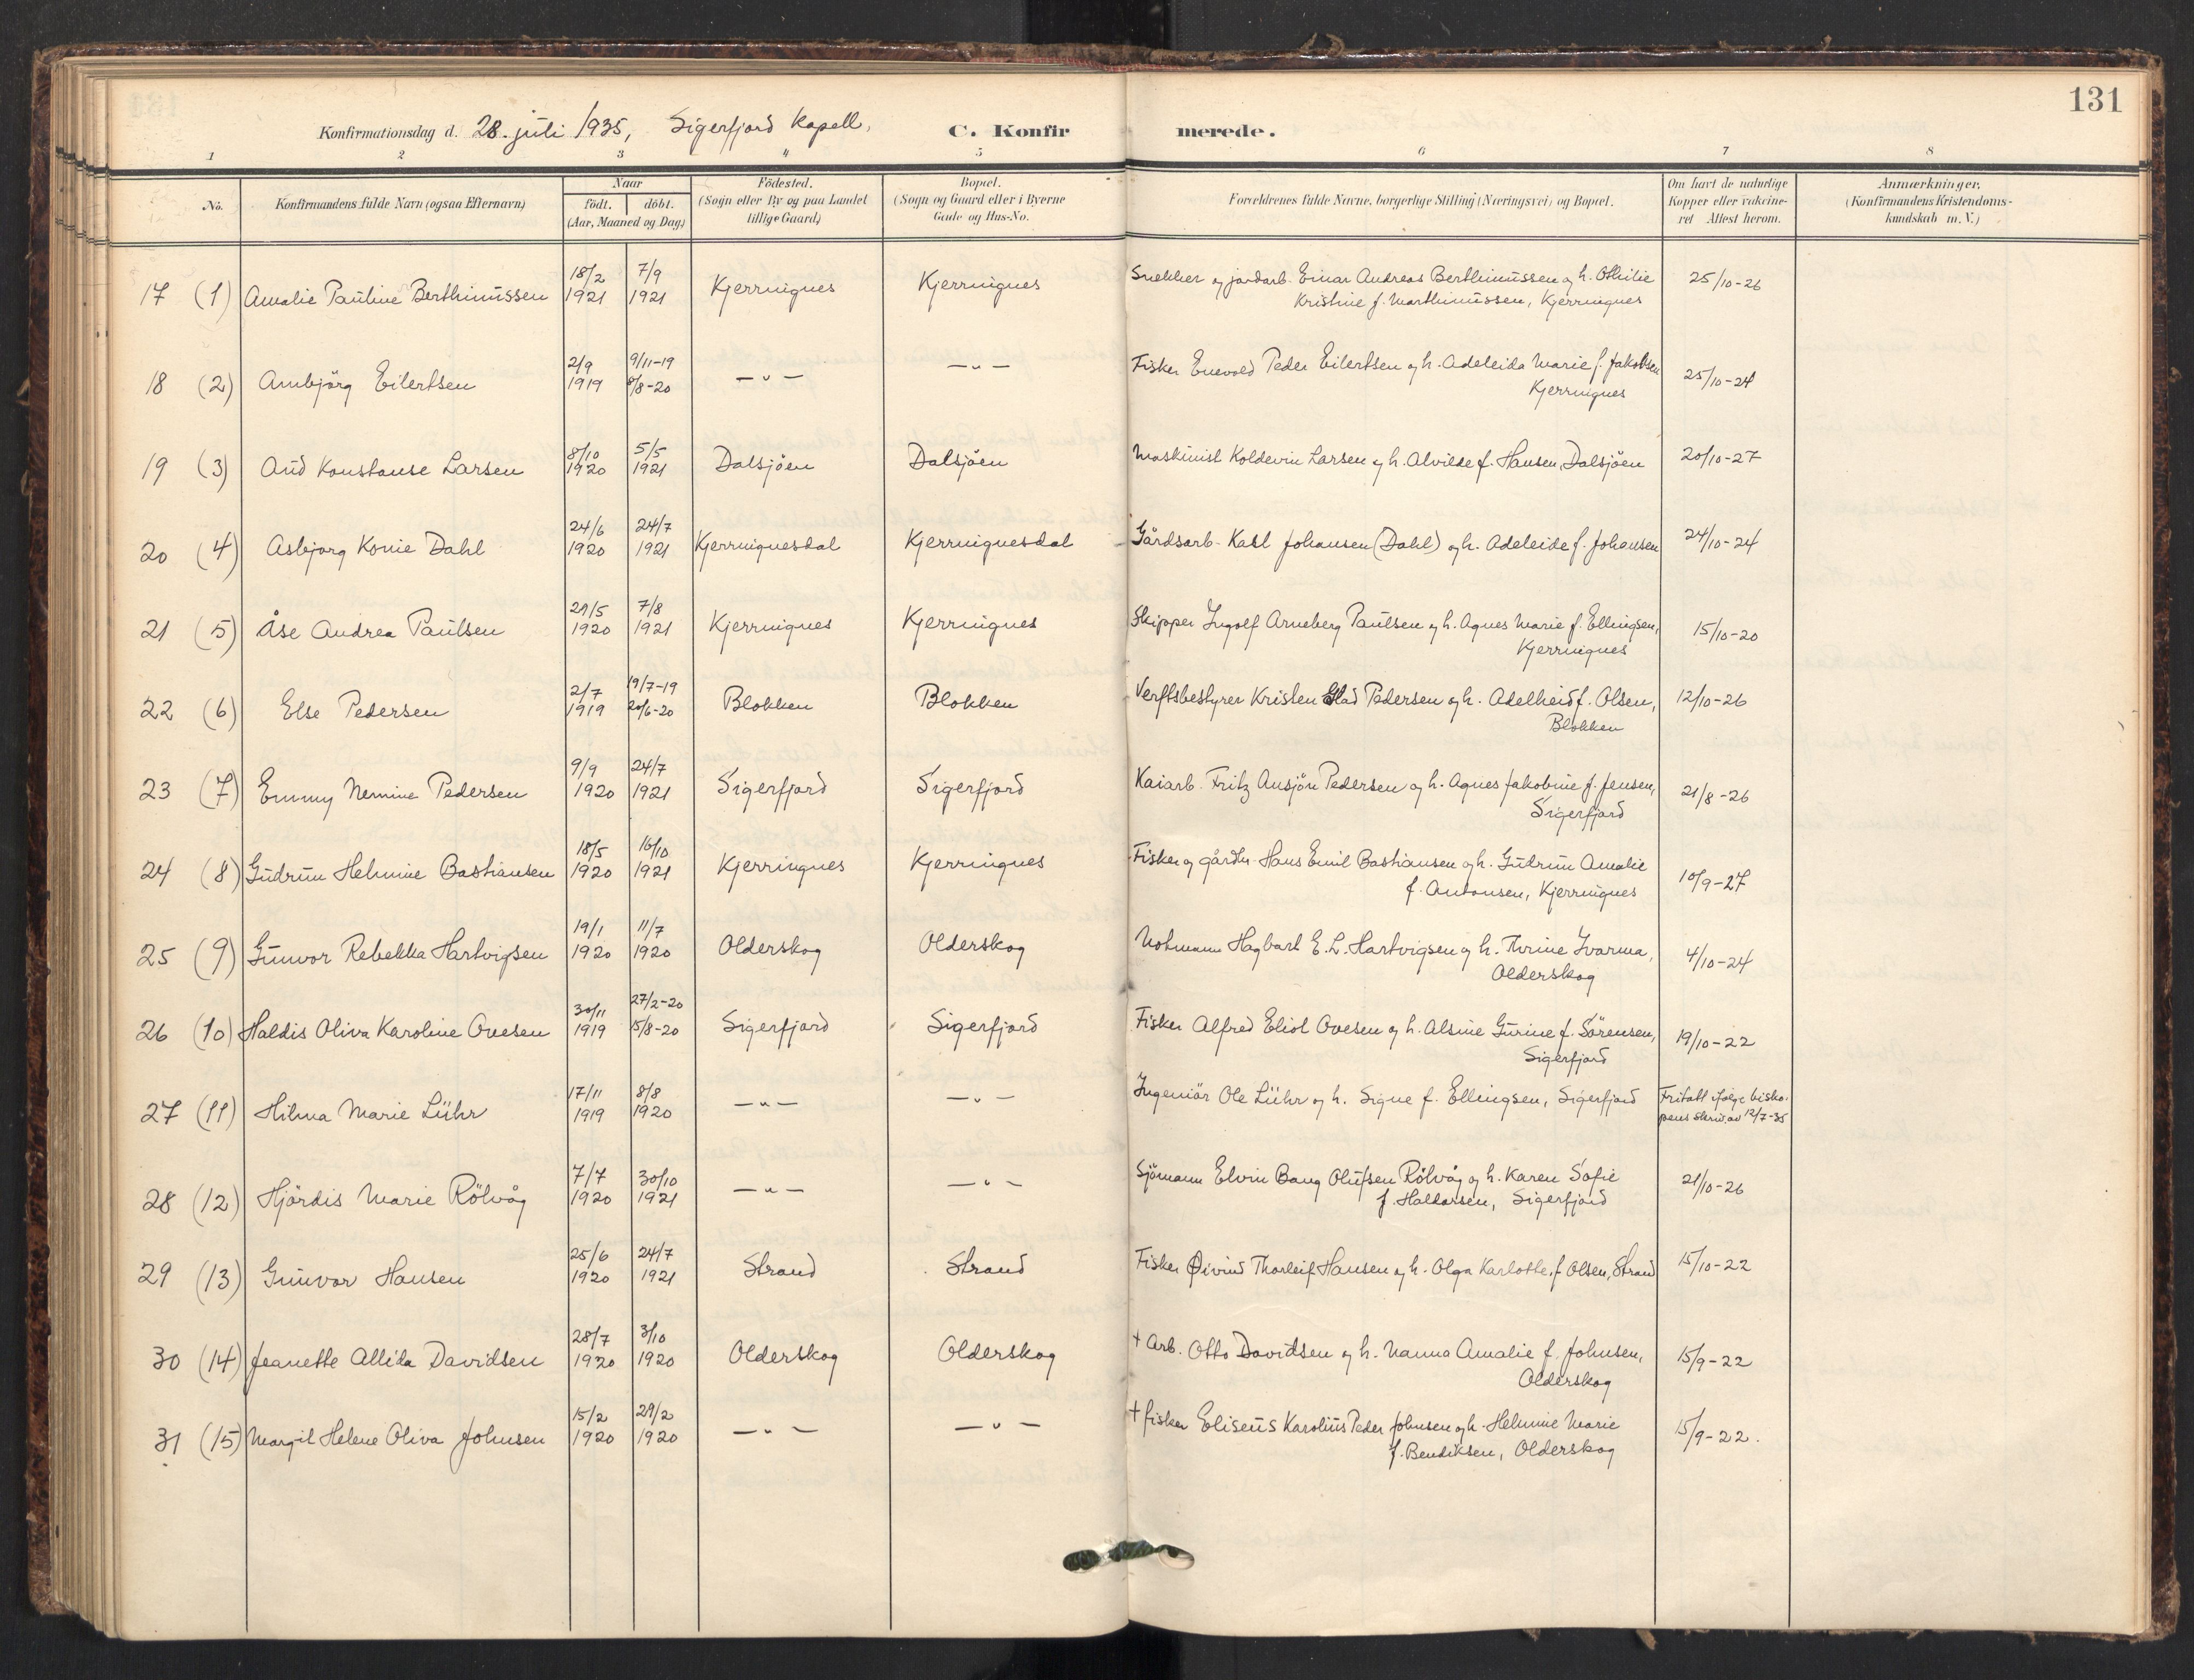 131
Konfirmationsdag d. 28. juli 1935, Sigerfjord Kapell, C. Konfir merede.
1 2 3 4 5 6 7 8
No.
Konfirmandens fulde Navn (ogsaa Efternavn)
Naar
födt. döbt.
(Aar, Maaned og Dag)
Födested.
(Sogn eller By og paa Landet
tillige Gaard)
Bopæl.
(Sogn og Gaard eller i Byerne
Gade og Hus-No.
Forældrenes fulde Navne, borgerlige Stilling (Næringsvei) og Bopæl.
Om havt de naturlige
Kopper eller vakcine-
ret Attest herom.
Anmærkninger.
(Konfirmandens Kristendoms-
kundskab m. V.)
17 (1) Amalie Pauline Berthinussen 18/2 1921 7/9 1921 Kjerringnes Kjerringnes Snekker og jordarb. Einar Andreas Berthinussen og h. Othilie
Kristine f. Marthinussen, Kjerringnes 25/10-26
18 (2) Annbjörg Eilertsen 2/9 1919 9/11-19 8/8-20 — " — — " — Fisker Enevold Peder Eilertsen og h. Adeleida Marie f. Jakobsen
Kjerringnes 25/10-24
19 (3) Aud Konstanse Larsen 8/10 1920 5/5 1921 Dalsjöen Dalsjöen Maskinist Koldevin Larsen og h. Alvilde f. Hansen, Dalsjöen 20/10-27
20 (4) Asbjørg Konie Dahl 24/6 1920 24/7 1921 Kjerringnesdal Kjerringnesdal Gårdsarb. Karl Johansen (Dahl) og h. Adeleide f. Johansen 24/10-24
21 (5) Åse Andrea Paulsen 29/5 1920 7/8 1921 Kjerringnes Kjerringnes Skipper Ingolf Arneberg Paulsen og h. Agnes Marie f. Ellingsen,
Kjerringnes 15/10-20
22 (6) Else Pedersen 2/7 1919 19/7-19 20/6-20 Blokken Blokken Verftsbestyrer Kristen Glad Pedersen og h. Adelheid f. Olsen,
Blokken 12/10-26
23 (7) Emmy Nemine Pedersen 9/9 1920 24/7 1921 Sigerfjord Sigerfjord Kaiarb. Fritz Ansjön Pedersen og h. Agnes Jakobine f. Jensen,
Sigerfjord 21/8-26
24 (8) Gudrun Helmine Bastiansen 18/5 1920 16/10 1921 Kjerringnes Kjerringnes Fisker og gårdbr. Hans Emil Bastiansen og h. Gudrun Amalie
f. Antonsen, Kjerringnes 10/9-27
25 (9) Gunvor Rebekka Hartvigsen 19/1 1920 11/7 1920 Olderskog Olderskog Notmann Hagbart E. L. Hartvigsen og h. Thrine Ivarma,
Olderskog 4/10-24
26 (10) Haldis Oliva Karoline Ovesen 30/11 1919 27/2-20 15/8-20 Sigerfjord Sigerfjord Fisker Alfred Eliot Ovesen og h. Alsine Gurine f. Sörensen,
Sigerfjord 19/10-22
27 (11) Hilma Marie Lühr 17/11 1919 8/8 1920 — " — — " — Ingeniör Ole Lühr og h. Signe f. Ellingsen, Sigerfjord Fritatt ifølge bisko-
pens skriv. av 12/7-35
28 (12) Hjördis Marie Rölvåg 7/7 1920 30/10 1921 — " — — " — Sjömann Elvin Bang Olufsen Rölvåg og h. Karen Sofie
f. Haldorsen, Sigerfjord 21/10-26
29 (13) Gunvor Hansen 25/6 1920 24/7 1921 Strand Strand Fisker Öivind Thorleif Hansen og h. Olga Karlotte f. Olsen, Strand 15/10-22
30 (14) Jeanette Allida Davidsen 28/7 1920 3/10 1920 Olderskog Olderskog † Arb. Otto Davidsen og h. Nanna Amalie f. Johnsen,
Olderskog 15/9-22
31 (15) Margit Helene Oliva Johnsen 15/2 1920 29/2 1920 — " — — " — † fisker Eliseus Karolius Peder Johnsen og h. Helmine Marie
f. Bendiksen, Olderskog 15/9-22.